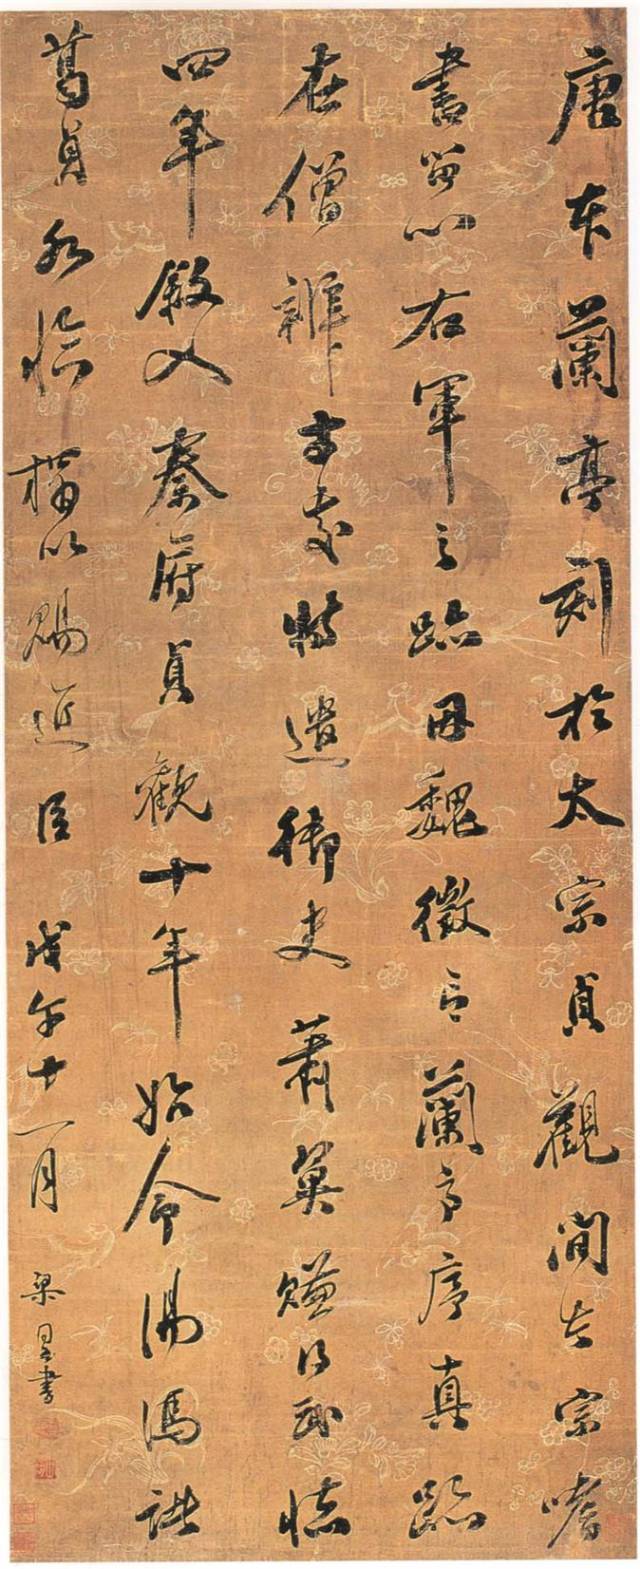 唐本蘭亭刻於太宗貞觀間太宗嗜
書留心右軍之跡魏徵言蘭亭序真跡
在僧辨才處特遣御史蕭翼賺得武德
四年入秦府貞觀十年始令湯馮諸
葛貞永臨搨以賜近臣 戊午十一月 書